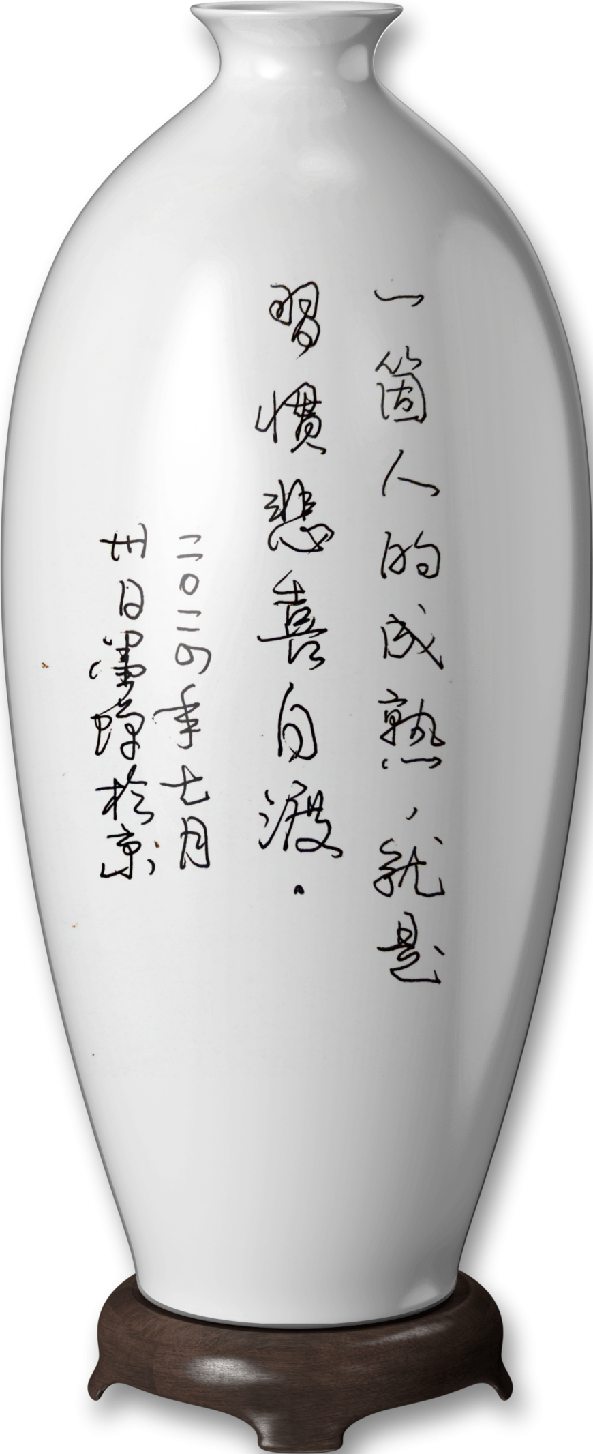 一箇人的成熟，就是
習慣悲喜自渡.
二〇二四年七月
廿日 於京